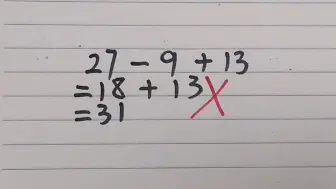 27 - 9 + 13
= 18 + 13
= 31